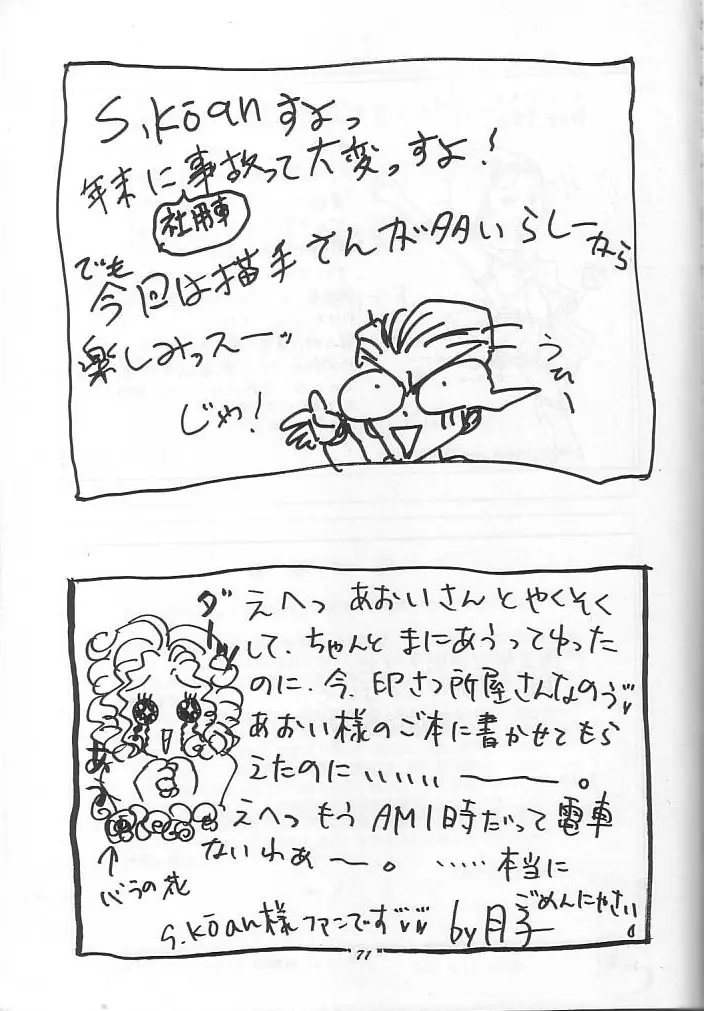 S.kōanすよっ
年末に事故って大変っすよ!
社用車
でも
今回は描手さんが多いらしーから
楽しみっスーッ
じゃ!
うひー
えへっ あおいさんとやくそく
して、ちゃんと まにあうってゆった
のに、今、印さつ所屋さんなのう゛
あおい様のご本に書かせてもら
えたのに、、、、、 ―――。
えへっ もう AM1時だって電車
ないわぁ ―。 ‥‥‥本当に
ごめんにゃさい。
S.kōan様ファンです by月子
ダーッ
あぁ
↑
バラの花
71